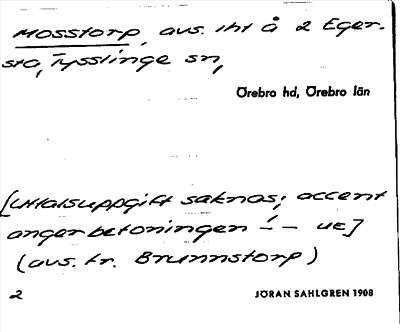 Mosstorp, avs. iht å 2 Eger-
sta, Tysslinge sn,
Örebro hd, Örebro län
[Uttalsuppgift saknas; accent
anger betoningen –́ – UE]
(avs. fr. Brunnstorp)
2
JÖRAN SAHLGREN 1908